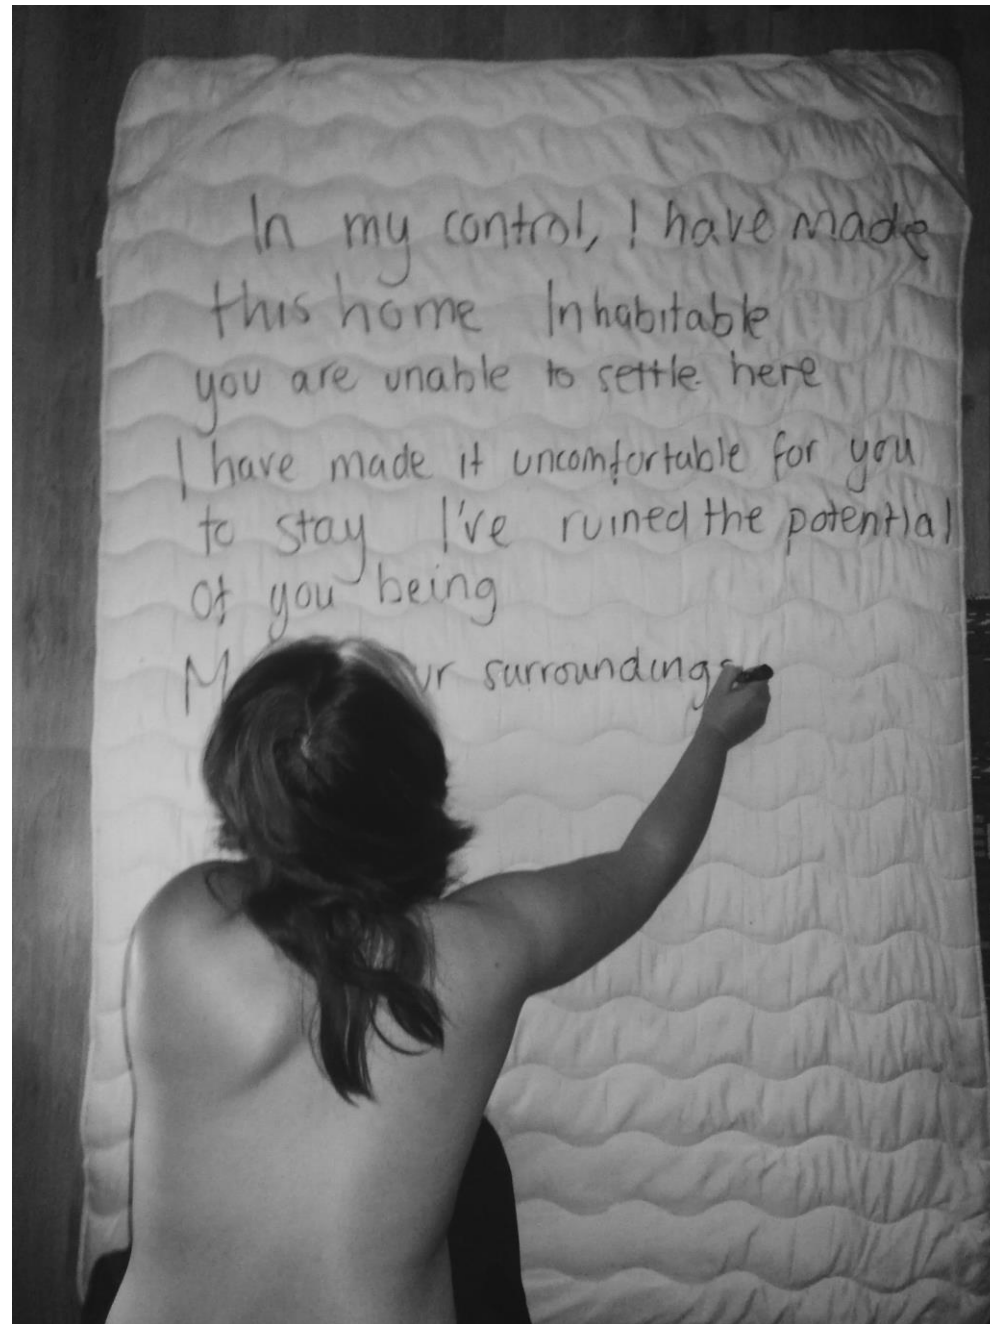 In my control, I have made
this home Inhabitable
you are unable to settle here
I have made it uncomfortable for you
to stay I've ruined the potential
of you being
surroundings